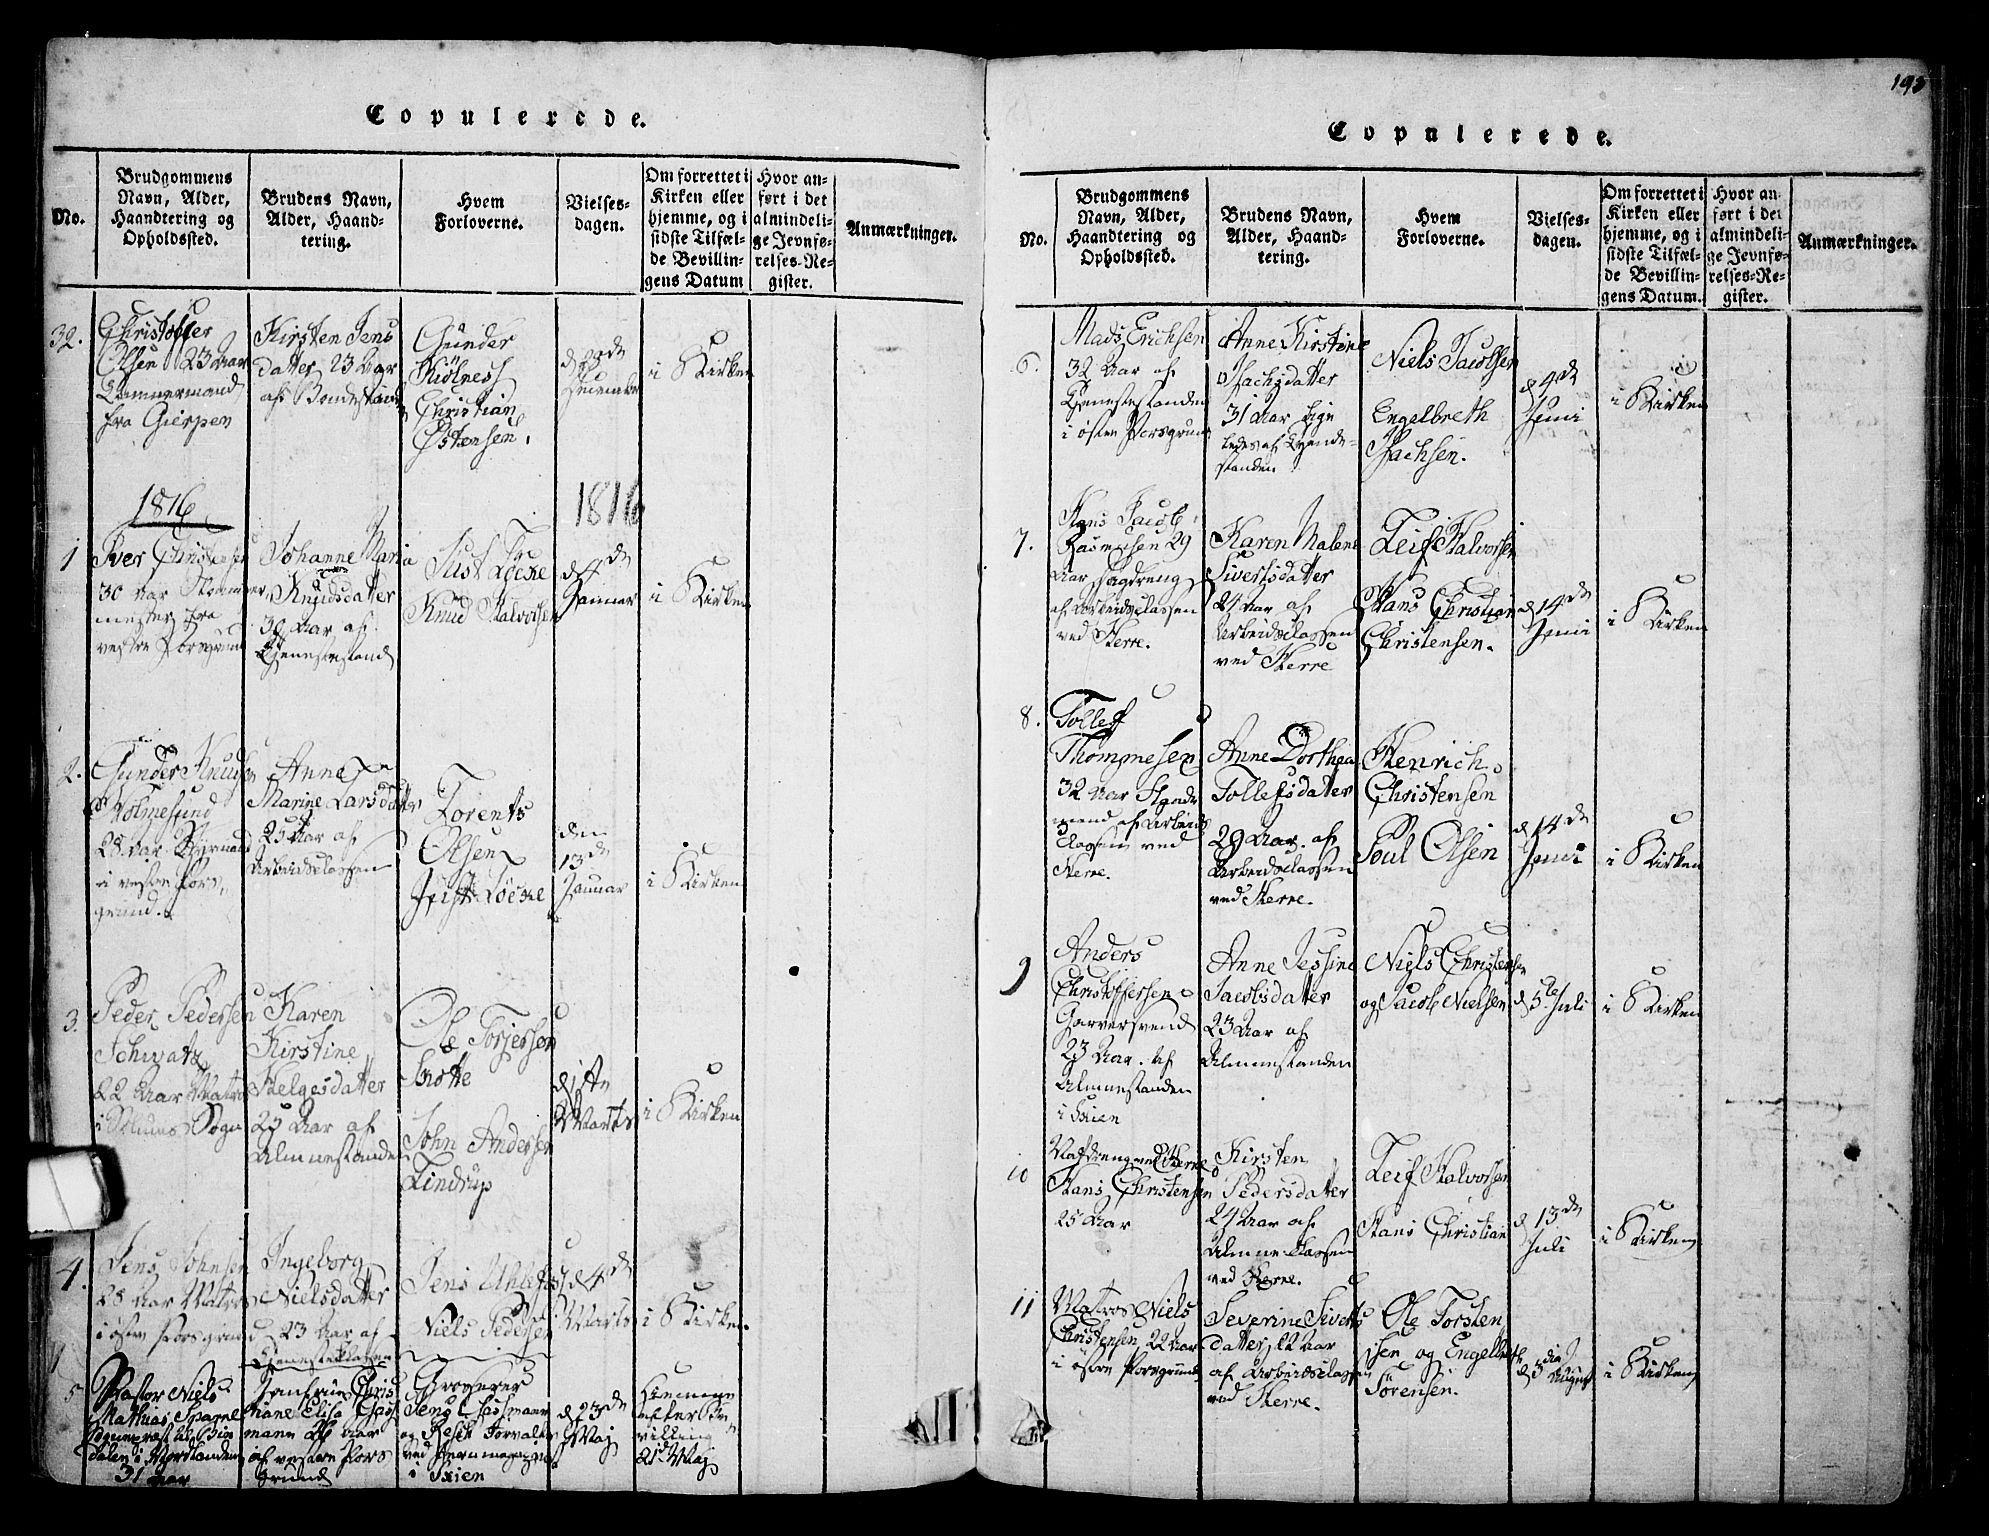 193
Copulerede.
No.
Brudgommens
Navn, Alder,
Haandtering og
Opholdssted.
Brudens Navn,
Alder, Haand-
tering.
Hvem
Forloverne.
Vielses-
dagen.
Om forrettet i
Kirken eller
hjemme, og i
sidste Tilfæl-
de Bevillin-
gens Datum
Hvor an-
ført i det
almindeli-
ge Jevnfø-
relses-Re-
gister.
Anmærkninger.
32.
Christoffer
Olsen 23 Aar
Tømmermand
fra Gierpen
Kirsten Jens
datter 23 Aar
af Bondestanden
Gunder
Kiölness
Christian
Östensen.
i Kirken
1816
1816
1
Iver Christensen
30 Aar
fra
vestre Porsgrund
Johanne Maria
Knudsdatter
30 Aar af
Tjenestestand
Just Löcke
Knud Halvorsen
d 4de
Januar
i Kirken
2.
Gunder Knudsen
Holmesund
28 Aar Styrmand
i vestre Pors-
grund.
Anne
Marine Larsdatter
25 Aar af
Arbeidsclassen
Lorents
Olsen
Just Löcke
den
13de
Januar
i Kirken
3.
Peder Pedersen
Schwatz
22 Aar Matros
i Sogn
Karen
Kirstine
Helgesdatter
25 Aar af
Almuestanden
Ole Torjessen
Skotte
John Andersen
Lindrup
Marts
i Kirken
4.
Jens Johnsen
28 Aar Matros
i östre Porsgrund
Ingeborg
Nielsdatter
23 Aar af
Tjenesteklassen
Jens
Niels Pedersen
d 4de
Marts
i Kirken.
5
Pastor Niels
Mathias
dalen i Nordlanden
31 Aar
Jomfrue Chris
tiane Elisa Chas
mann 26 Aar
af vestre Pors
grund
Groserer
Jens Chasmann
og Forvalter
ved Jernmagazinet
i Skien
d 23de
Maj
hiemme
efter Be
villing
21de Maj
Copulerede.
No.
Brudgommens
Navn, Alder,
Haandtering og
Opholdssted.
Brudens Navn,
Alder, Haand-
tering.
Hvem
Forloverne.
Vielses-
dagen.
Om forrettet i
Kirken eller
hjemme, og i
sidste Tilfæl-
de Bevillin-
gens Datum.
Hvor an-
ført i det
almindeli-
ge Jevnfø-
relses-Re-
gister.
Anmærkninger.
6.
Mads Erichsen
32 Aar af
Tjenestestanden
i östre Porsgrund
Anne Kirstine
Isachsdatter
31 Aar lige
ledes af Tjeneste-
standen
Niels Jacobsen
Engelbreth
Isachsen.
d 4de
Juni
i Kirken
7.
Hans Jacob
Rasmusen 29
Aar Sagdreng
af Arbeidsclassen
ved Herre.
Karen Malene
Sivertsdatter
24 Aar af
Arbeidsclassen
ved Herre
Leif Halvorsen
Hans Christian
Christensen.
d 14de
Juni
i Kirken
8.
Tollef
Thommesen
32 Aar
mand af Arbeids
classen ved
Herre.
Anne Dorthea
Tollefsdatter
29 Aar. af
Arbeidsclassen
ved Herre.
Henrich
Christensen
Poul Olsen
d 14de
Juni
i Kirken
9
Anders
Christoffersen
Garversvend
23 Aar. af
Almuestanden
i Skien
Anne Jessine
Jacobsdatter
23 Aar af
Almuestanden
Niels Christensen
og Jacob Nielsen
d 5te Juli
i Kirken
10
ved Herre
Hans Christensen
25 Aar
Kirsten
Pedersdatter
24 Aar af
Almueclassen
ved Herre.
Leif Halvorsen
Hans Christian
d 13de
Juli
i Kirken
11
Matros Niels
Christensen 22 Aar
i östre Porsgrund
Severine Siverts
datter 22 Aar
af Arbeidsclassen
ved Herre.
Ole Torsten
sen og Engelbreth
Sörensen.
d 3die
August
i Kirken